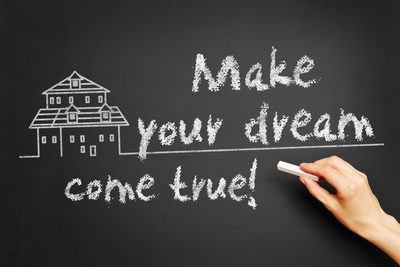 Make
your dream
come true!